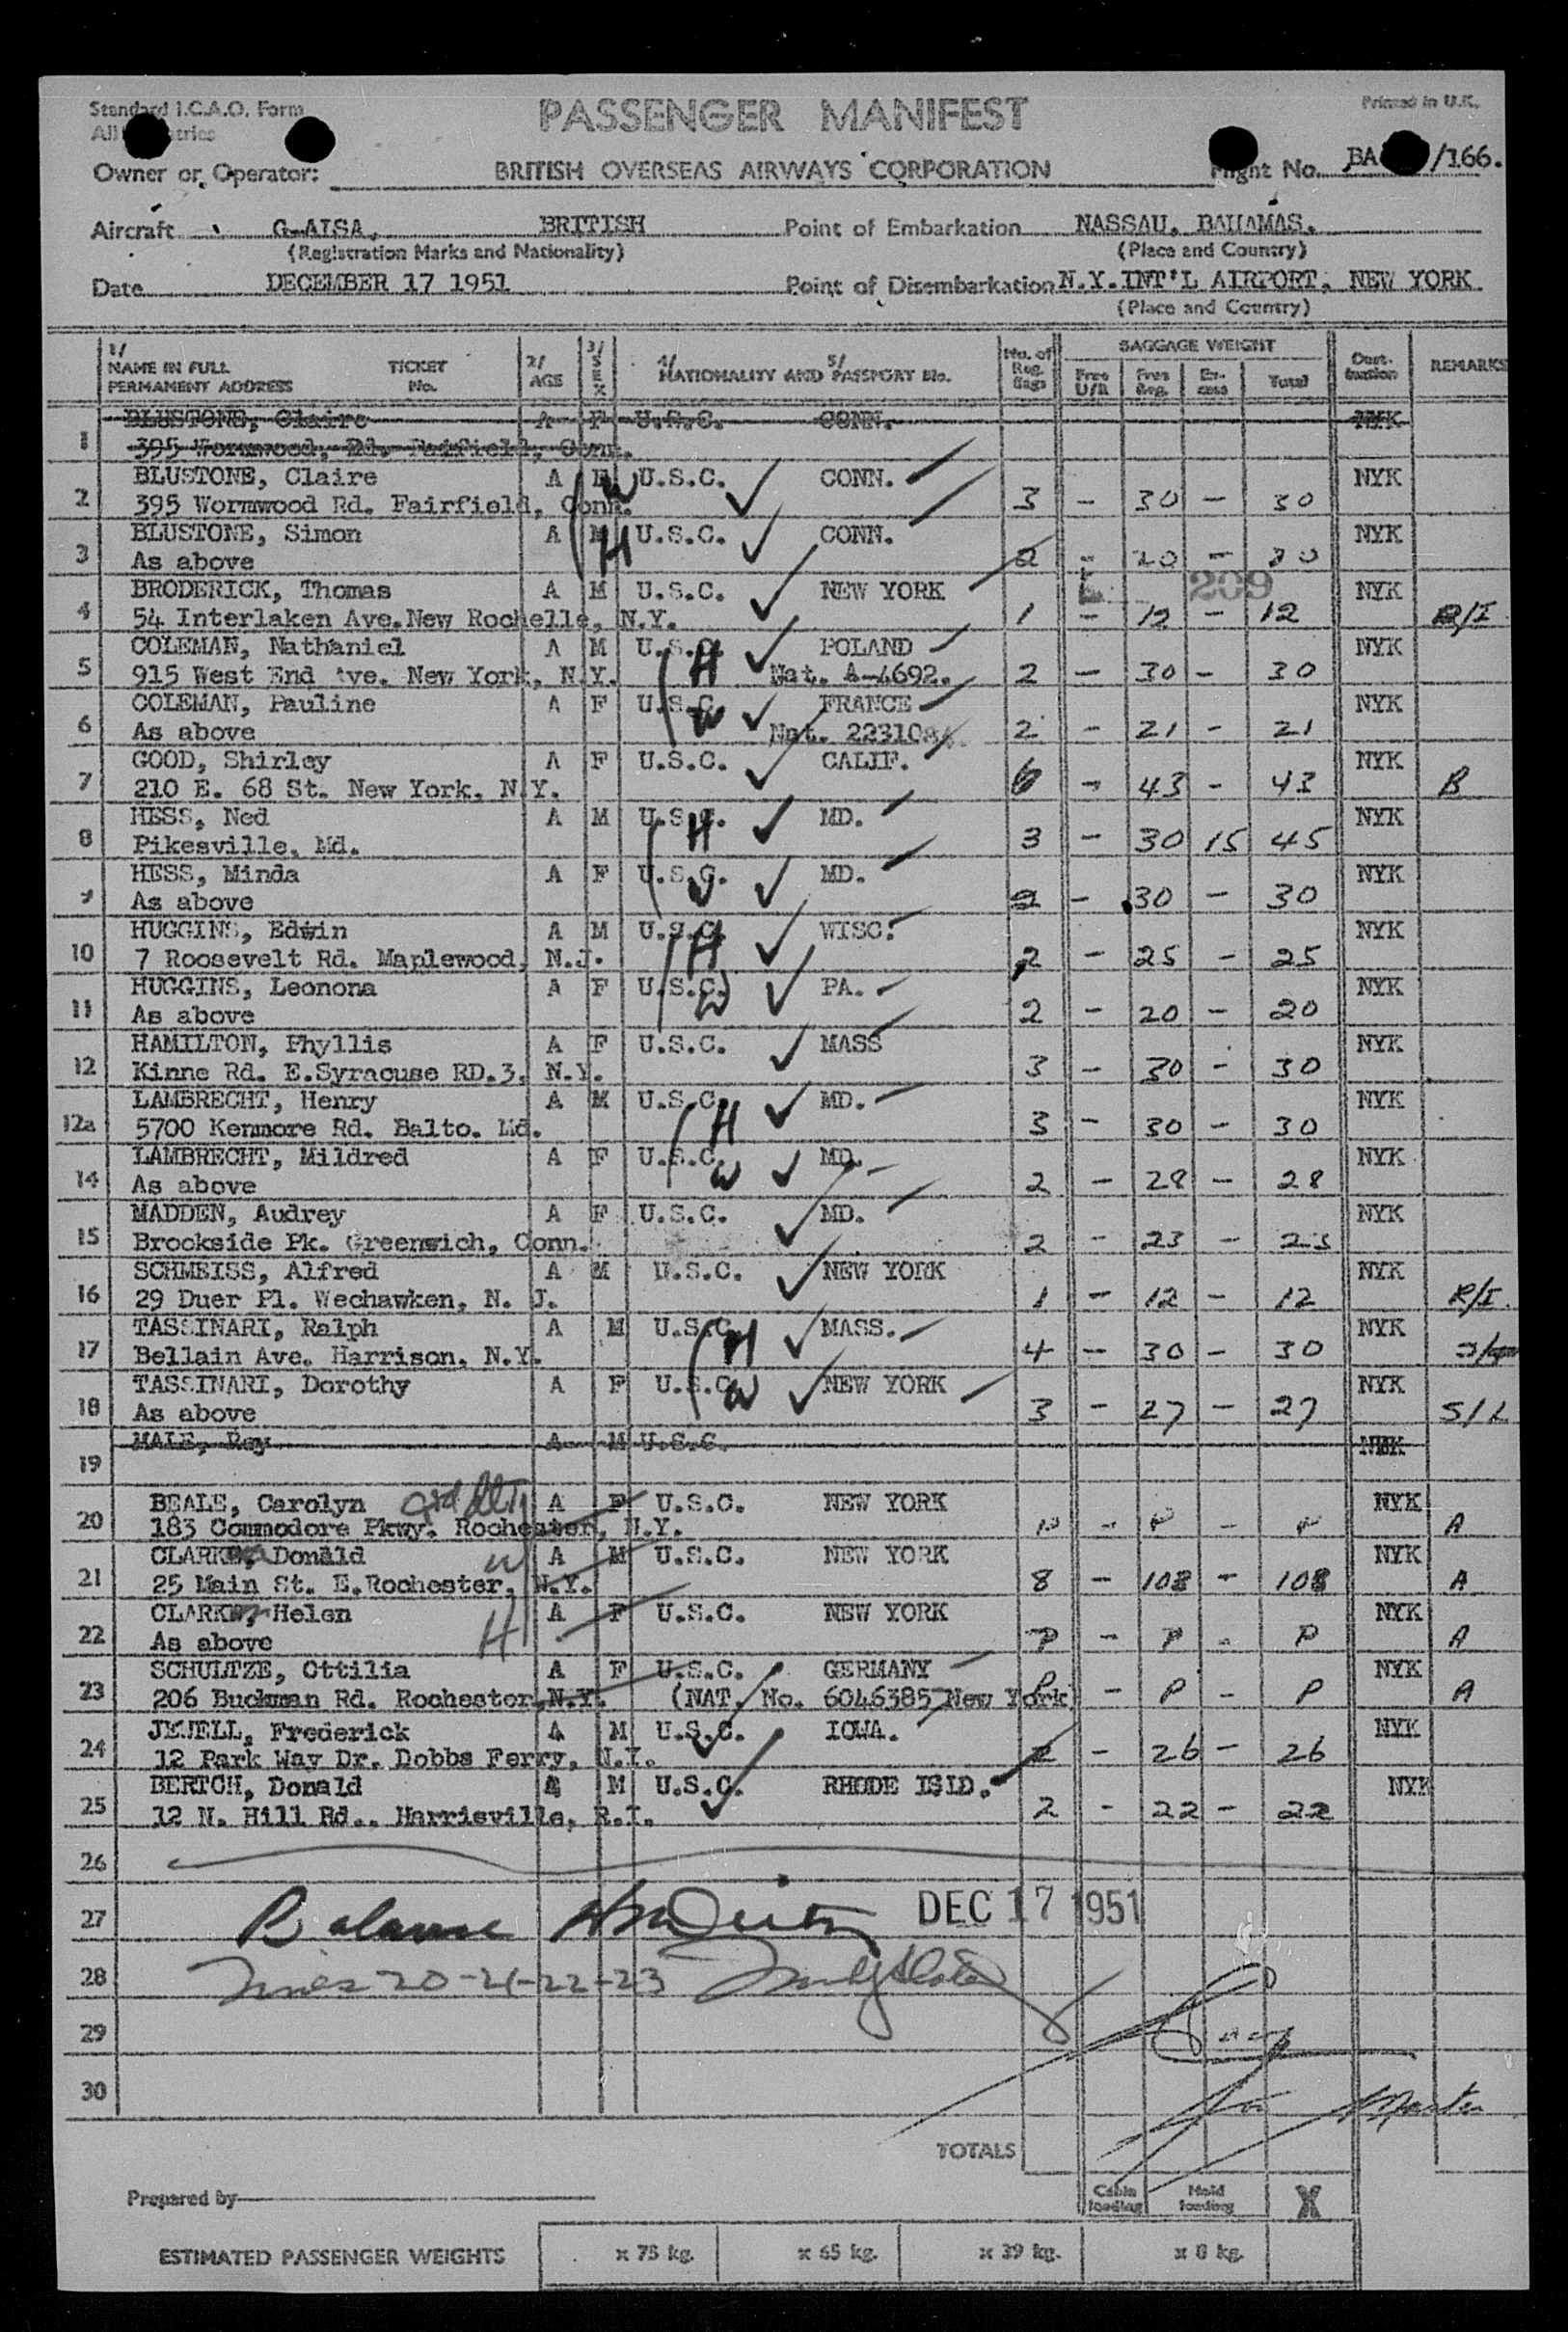 Standard I.C.A.O. Form
PASSENGER MANIFEST
Printed in U.K.
All
Owner or Operator: BRITISH OVERSEAS AIRWAYS CORPORATION Flight No. BA /166.
Aircraft G-AISA, BRITISH Point of Embarkation NASSAU, BAHAMAS.
(Registration Marks and Nationality) (Place and Country)
Date DECEMBER 17 1951 Point of Disembarkation N.Y.INT'L AIRPORT, NEW YORK
(Place and Country)
1/ NAME IN FULL PERMANENT ADDRESS TICKET No. 2/ AGE 3/ SEX 4/ 5/ NATIONALITY AND PASSPORT No. No. of Reg. Bags BAGGAGE WEIGHT Free U/R Free Reg. Ex-cess Total Dest-ination REMARKS
1 BLUSTONE, Claire A F U.S.C. CONN. NYK
395 Wormwood, Rd. Fairfield, Conn.
2 BLUSTONE, Claire A F W U.S.C. CONN. NYK
395 Wormwood Rd. Fairfield, Conn. 3 - 30 - 30
3 BLUSTONE, Simon A M H U.S.C. CONN. NYK
As above 2 - 20 - 20
4 BRODERICK, Thomas A M U.S.C. NEW YORK 209 NYK
54 Interlaken Ave.New Rochelle, N.Y. 1 - 12 - 12 R/I
5 COLEMAN, Nathaniel A M U.S.C. H POLAND NYK
915 West End Ave. New York, N.Y. Nat. A-4692. 2 - 30 - 30
6 COLEMAN, Pauline A F U.S.C. W FRANCE NYK
As above Nat. 2 - 21 - 21
7 GOOD, Shirley A F U.S.C. CALIF. NYK
210 E. 68 St. New York, N.Y. 6 - 43 - 43 B
8 HESS, Ned A M U.S.C. H MD. NYK
Pikesville, Md. 3 - 30 15 45
9 HESS, Minda A F U.S.C. W MD. NYK
As above 2 - 30 - 30
10 HUGGINS, Edwin A M U.S.C. H WISC. NYK
7 Roosevelt Rd. Maplewood, N.J. 2 - 25 - 25
11 HUGGINS, Leonona A F U.S.C. W PA. NYK
As above 2 - 20 - 20
12 HAMILTON, Phyllis A F U.S.C. MASS NYK
Kinne Rd. E.Syracuse RD.3, N.Y. 3 - 30 - 30
12a LAMBRECHT, Henry A M U.S.C. H MD. NYK
5700 Kenmore Rd. Balto. Md. 3 - 30 - 30
14 LAMBRECHT, Mildred A F U.S.C. W MD. NYK
As above 2 - 28 - 28
15 MADDEN, Audrey A F U.S.C. MD. NYK
Brookside Pk. Greenwich, Conn. 2 - 23 - 23
16 SCHMEISS, Alfred A M U.S.C. NEW YORK NYK
29 Duer Pl. Wechawken, N. J. 1 - 12 - 12 R/I.
17 TASSINARI, Ralph A M U.S.C. H MASS. NYK
Bellain Ave. Harrison, N.Y. 4 - 30 - 30
18 TASSINARI, Dorothy A F U.S.C. W NEW YORK NYK
As above 3 - 27 - 27 S/L
19 MALE, Roy A M U.S.C. NYK
20 BEALE, Carolyn A F U.S.C. NEW YORK NYK
183 Commodore Pkwy. Rochester, N.Y. P - P - P A
21 Donald W A M U.S.C. NEW YORK NYK
25 Main St. E.Rochester, N.Y. 8 - 108 - 108 A
22 Helen H A F U.S.C. NEW YORK NYK
As above P - P - P A
23 SCHULTZE, Ottilia A F U.S.C. GERMANY NYK
206 Buckman Rd. Rochester, N.Y. (NAT. No. 6046385 New York) P - P - P A
24 JEWELL, Frederick A M U.S.C. IOWA. NYK
12 Park Way Dr. Dobbs Ferry, N.Y. 2 - 26 - 26
25 BERTCH, Donald A M U.S.C. RHODE ISLD. NYK
12 N. Hill Rd., Harrisville, R.I. 2 - 22 - 22
26
27 Balance DEC 17 1951
28 Lines 20-21-22-23
29
30
TOTALS
Prepared by Cabin loading Hold loading X
ESTIMATED PASSENGER WEIGHTS x 75 kg. x 65 kg. x 39 kg. x 8 kg.